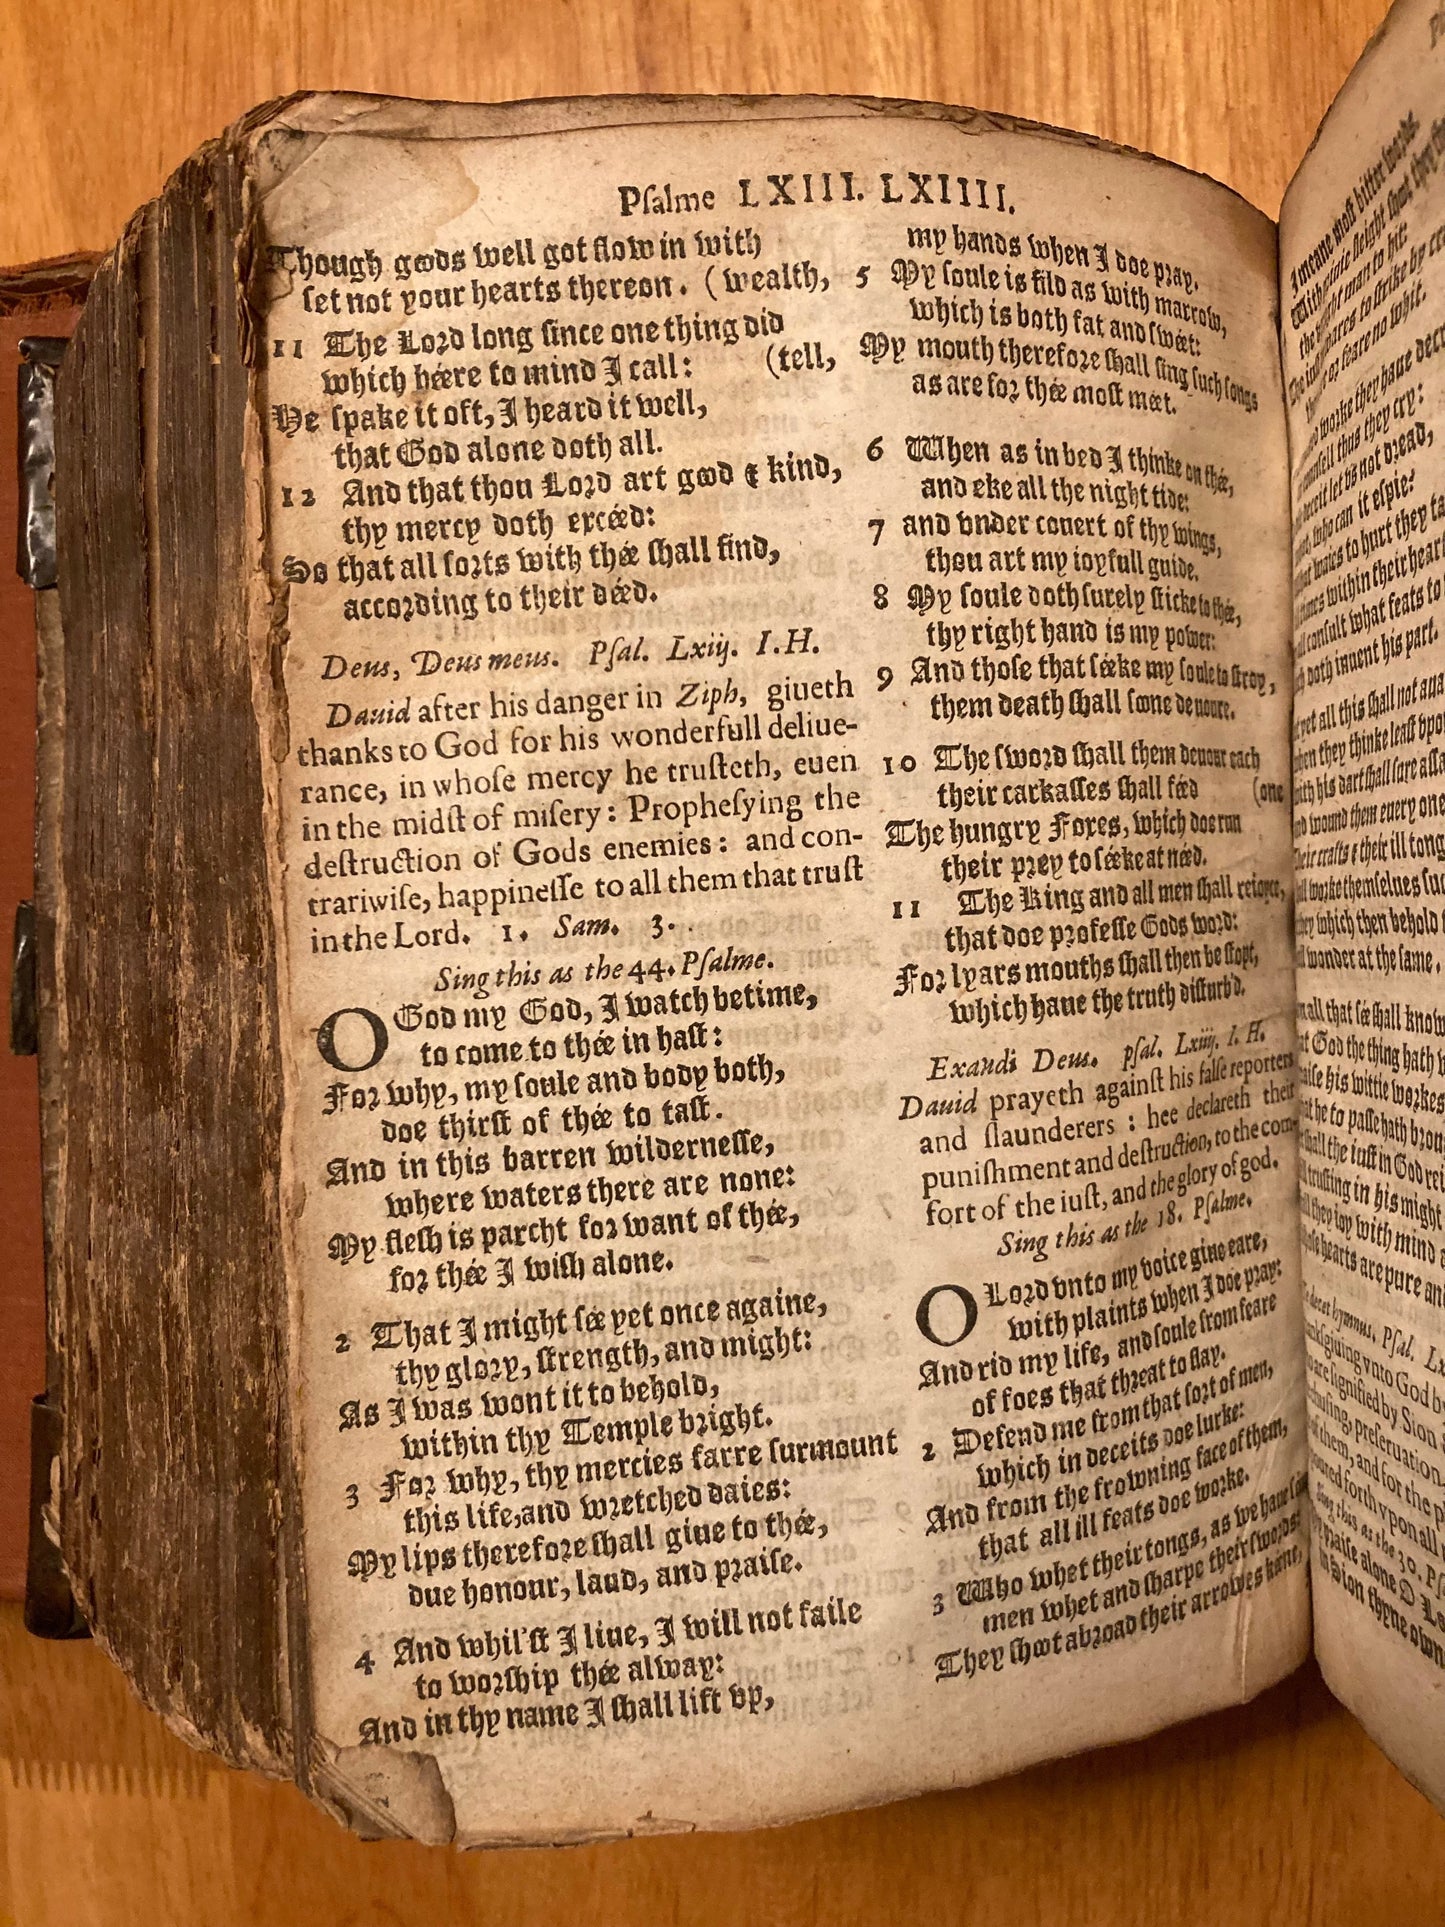 Psalme LXIII. LXIIII.
Though goods well got flow in with
set not your hearts thereon. (wealth,
11 The Lord long since one thing did
which héere to mind I call: (tell,
He spake it oft, I heard it well,
that God alone doth all.
12 And that thou Lord art good & kind,
thy mercy doth excéed:
So that all sorts with thée shall find,
according to their déed.
Deus, Deus meus. Psal. Lxiij. I.H.
Dauid after his danger in Ziph, giueth
thanks to God for his wonderfull deliue-
rance, in whose mercy he trusteth, euen
in the midst of misery: Prophesying the
destruction of Gods enemies: and con-
trariwise, happinesse to all them that trust
in the Lord. 1. Sam. 3.
Sing this as the 44. Psalme.
O God my God, I watch betime,
to come to thée in hast:
For why, my soule and body both,
doe thirst of thée to tast.
And in this barren wildernesse,
where waters there are none:
My flesh is parcht for want of thée,
for thée I wish alone.
2 That I might sée yet once againe,
thy glory, strength, and might:
As I was wont it to behold,
within thy Temple bright.
3 For why, thy mercies farre surmount
this life, and wretched daies:
My lips therefore shall giue to thée,
due honour, laud, and praise.
4 And whil'st I liue, I will not faile
to worship thée alway:
And in thy name I shall lift vp,
my hands when I doe pray.
5 My soule is fild as with marrow,
which is both fat and swéet:
My mouth therefore shall sing such songs
as are for thée most méet.
6 When as in bed I thinke on thée,
and eke all the night tide:
7 and vnder couert of thy wings,
thou art my ioyfull guide.
8 My soule doth surely sticke to thée,
thy right hand is my power:
9 And those that séeke my soule to stroy,
them death shall soone deuoure.
10 The sword shall them deuour each
their carkasses shall féed (one
The hungry Foxes, which doe run
their prey to séeke at néed.
11 The King and all men shall reioyce,
that doe professe Gods word:
For lyars mouths shall then be stopt,
which haue the truth disturb'd.
Exaudi Deus. psal. Lxiiij. I. H.
Dauid prayeth against his false reporters
and slaunderers : hee declareth their
punishment and destruction, to the com-
fort of the iust, and the glory of god.
Sing this as the 18. Psalme.
O Lord vnto my voice giue eare,
with plaints when I doe pray:
And rid my life, and soule from feare
of foes that threat to slay.
2 Defend me from that sort of men,
which in deceits doe lurke:
And from the frowning face of them,
that all ill feats doe worke.
3 Who whet their tongs, as we haue
men whet and sharpe their swords:
They shoot abroad their arrowes kéene,
I meane most bitter words
With priuie sleight shoot they
the vpright man to hit:
to strike by
or feare no whit.
worke they haue
thus they cry:
deceit let vs not dread,
who can it espie?
waies to hurt they
times within their heart
consult what feats to
doth inuent his part.
yet all this shall not
when they thinke least vpon
with his dart shall sure
and wound them euery one
Their crafts & their ill tong
worke themselues
they which then behold
wonder at the same.
all that sée shall know
that God the thing hath
his wittie workes
to passe hath
shall the iust in God
trusting in his might
they ioy with mind
hearts are pure and
decet hymnus. Psal.
vnto God
are signified by Sion
preseruation
of them, and for the
forth vpon all
Sing this as the 30.
praise alone O
in Sion thyne